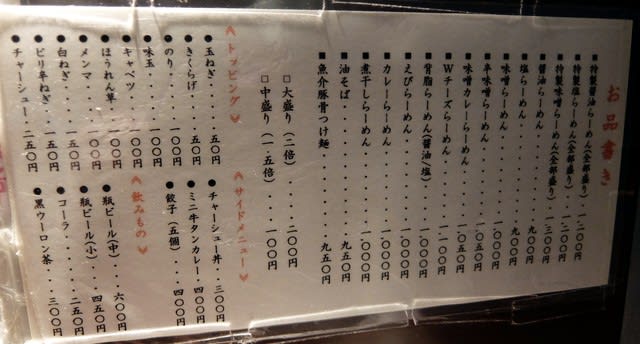 お品書き
■特製醤油らーめん(全部盛り)・一二〇〇円
■特製塩らーめん(全部盛り)・・一二〇〇円
■特製味噌らーめん(全部盛り)・一三〇〇円
■醤油らーめん・・・・・・・九〇〇円
■塩らーめん・・・・・・・・九〇〇円
■味噌らーめん・・・・・・一〇〇〇円
■辛味噌らーめん・・・・・一〇五〇円
■味噌カレーらーめん・・・一〇五〇円
■Wチーズらーめん・・・・一〇〇〇円
■背脂らーめん(醤油/塩)・・一〇〇〇円
■えびらーめん・・・・・・一〇〇〇円
■カレーらーめん・・・・・一〇〇〇円
■煮干しらーめん・・・・・一〇〇〇円
■油そば・・・・・・・・・九五〇円
■魚介豚骨つけ麺・・・・・九五〇円
□大盛り(二倍)・・・・・二〇〇円
□中盛り(一.五倍)・・・一〇〇円
≪トッピング≫
●玉ねぎ・・・・・五〇円
●きくらげ・・・・五〇円
●のり・・・・・一〇〇円
●味玉・・・・・一〇〇円
●キャベツ・・・一〇〇円
●ほうれん草・・一〇〇円
●メンマ・・・・一〇〇円
●白ねぎ・・・・一五〇円
●ピリ辛ねぎ・・一五〇円
●チャーシュー・二五〇円
≪サイドメニュー≫
●チャーシュー丼・・三〇〇円
●ミニ牛タンカレー・四〇〇円
●餃子(五個)・・・四〇〇円
≪飲みもの≫
●瓶ビール(中)・・六〇〇円
●瓶ビール(小)・・四五〇円
●コーラ・・・・・二五〇円
●黒ウーロン茶・・三〇〇円